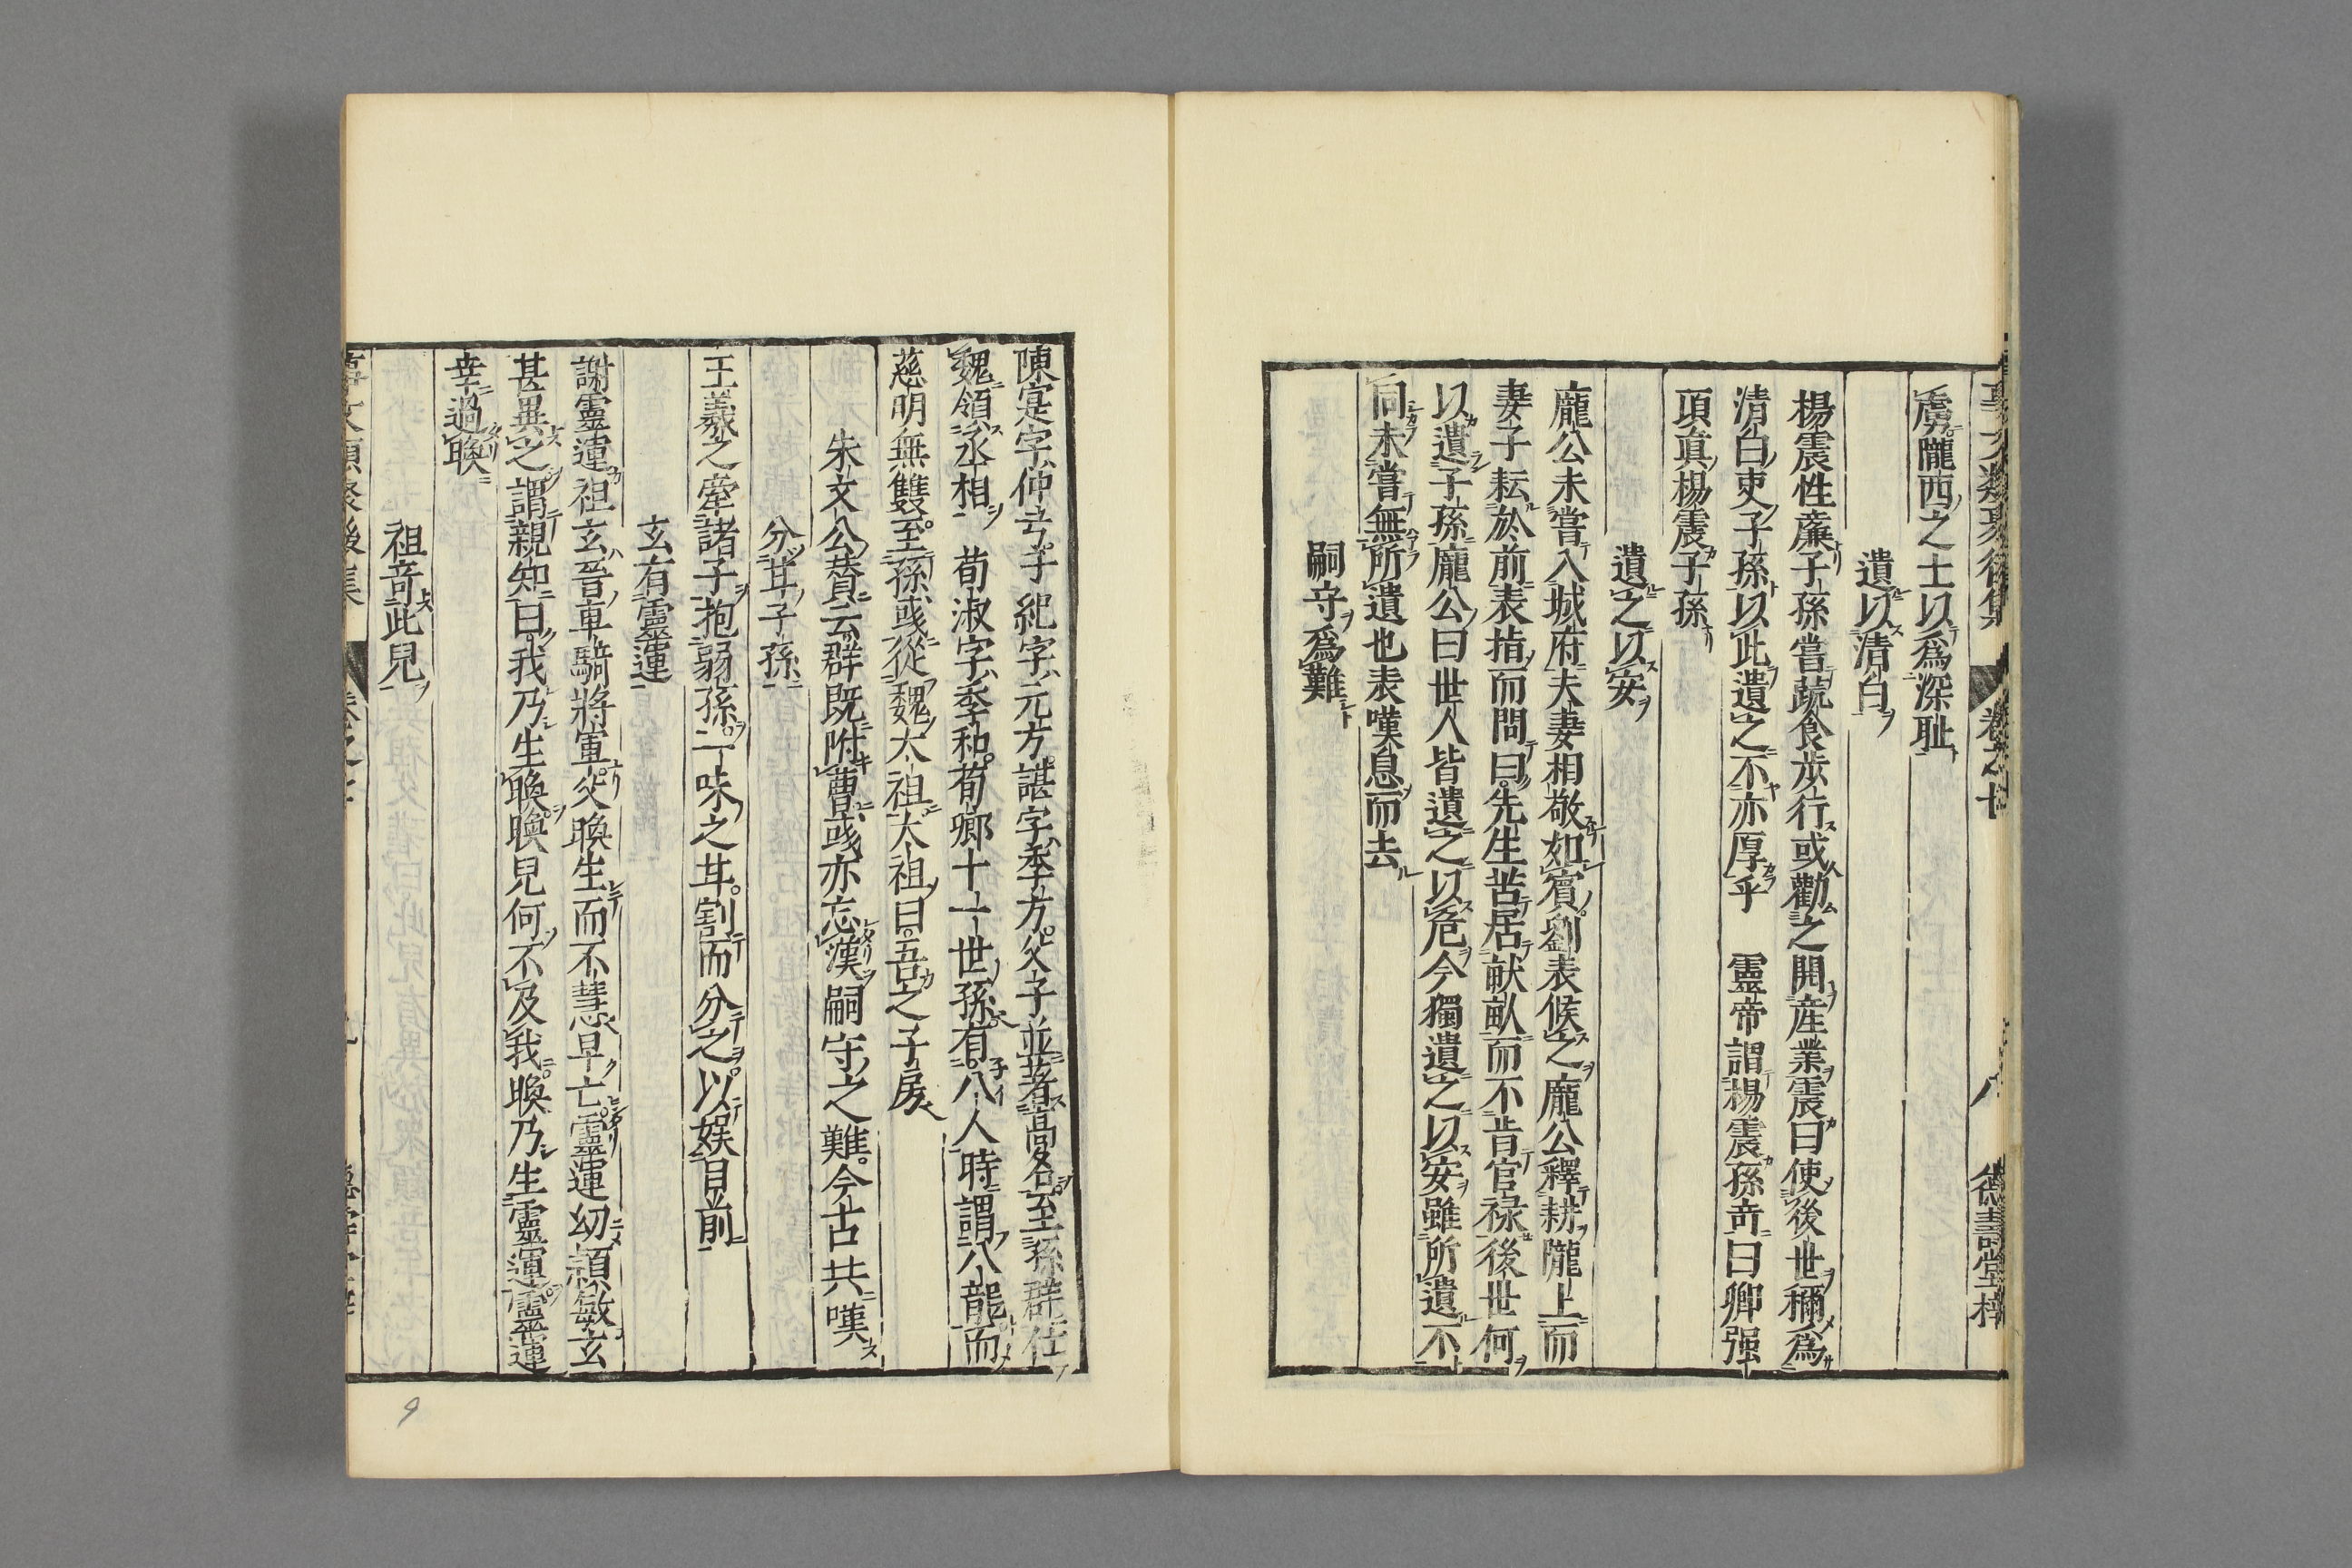 事文類聚後集 卷之七 八 德壽堂梓
虜隴西之士以爲深耻
遺以清白
楊震性廉子孫嘗蔬食步行或勸之開産業震曰使後世稱爲
清白吏子孫以此遺之不亦厚乎 靈帝謂楊震孫奇曰卿强
項真楊震子孫
遺之以安
龐公未嘗入城府夫妻相敬如賓劉表候之龐公釋耕隴上而
妻子耘於前表指而問曰先生苦居畎畝而不肯官禄後世何
以遺子孫龐公曰世人皆遺之以危今獨遺之以安雖所遺不
同未嘗無所遺也表嘆息而去
嗣守爲難
陳寔字仲弓子紀字元方諶字季方父子並著高名至孫群仕
魏領丞相 荀淑字季和荀卿十一世孫有八人時謂八龍而
慈明無雙至孫彧從魏太祖太祖曰吾之子房
朱文公賛云群既附曹彧亦忘漢嗣守之難今古共嘆
分甘子孫
王羲之牽諸子抱弱孫一味之甘割而分之以娱目前
玄有靈運
謝靈運祖玄晉車騎將軍父瑍生而不慧早亡靈運幼穎敏玄
甚異之謂親知曰我乃生瑍瑍兒何不及我瑍乃生靈運靈運
幸過瑍
祖奇此兒
事文類聚後集